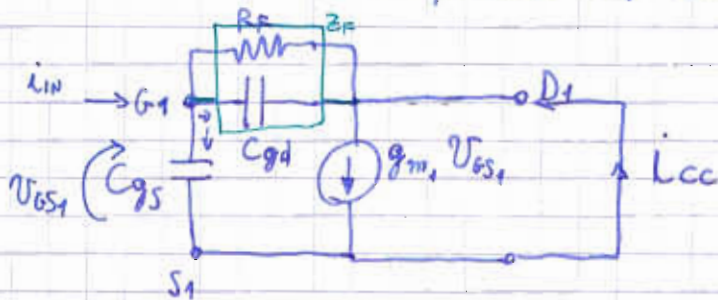 RF ZF
iIN G1 D1
Cgd
vGS1 Cgs gm1 vGS1 icc
S1